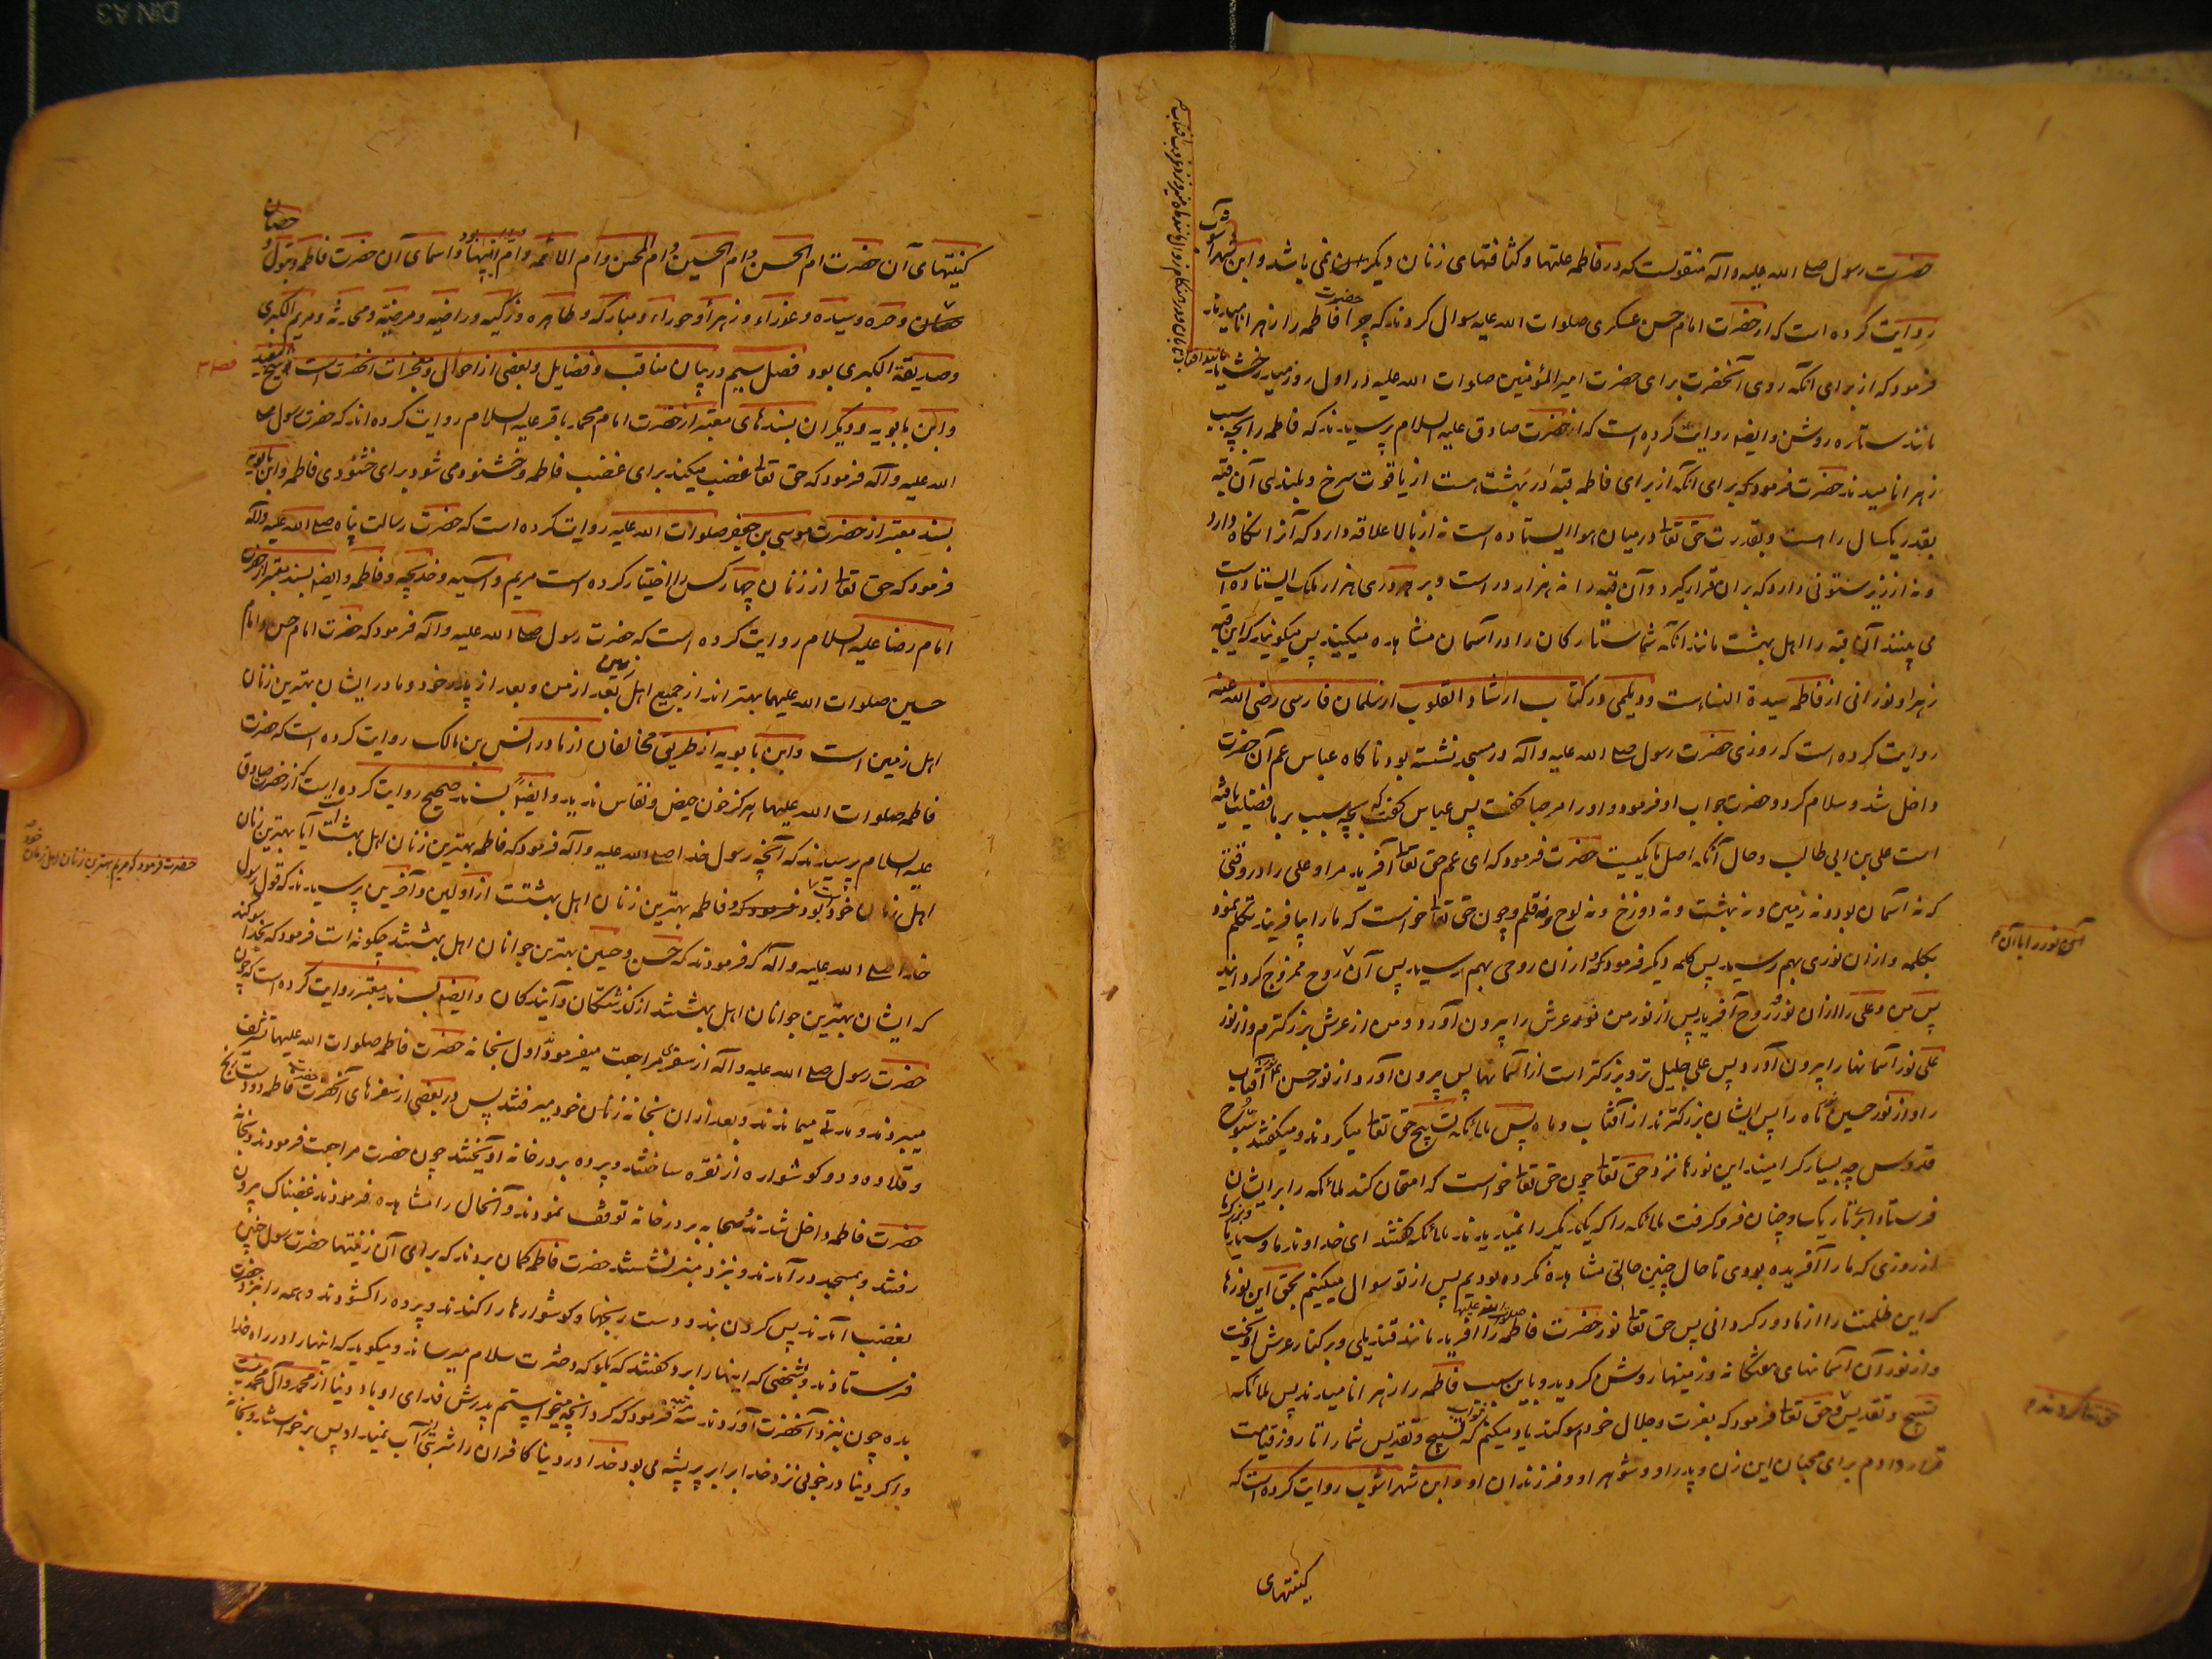 حضرت رسول صلی الله علیه و آله منقولست که در فاطمه علتها و کثافتهای زنان دیگر نمی باشد و ابن شهر آشوب
روایت کرده است که از حضرت امام حسن عسکری صلوات الله علیه سوال کردند که چرا حضرت فاطمه را زهرا نامیدند
فرمود که از برای آنکه روی آنحضرت برای حضرت امیرالمؤمنین صلوات الله علیه در اول روز میدرخشید مانند آفتاب
مانند ستاره روشن و ایضا روایت کرده است که از حضرت صادق علیه السلام پرسیدند که فاطمه را بچه سبب
زهرا نامیدند حضرت فرمود که برای آنکه از برای فاطمه قبه در بهشت هست از یاقوت سرخ و بلندی آن قبه
بقدر یکسال راهست و بقدرت حق تعالی در میان هوا ایستاده است نه از بالا علاقه دارد که آنرا نگاه دارد
و نه از زیر ستونی دارد که بر آن قرار گیرد و آن قبه را نه هزار در است و بر هر دری هزار ملک ایستاده است
می بینند آن قبه را اهل بهشت مانند آنکه شما ستارکان را در آسمان مشاهده میکنید پس میکویند که این قبه
زهرا و نورانی از فاطمه سیدة النساء است و دیلمی در کتاب ارشاد القلوب از سلمان فارسی رضی الله عنه
روایت کرده است که روزی حضرت رسول صلی الله علیه و آله در مسجد نشسته بود ناکاه عباس عم آن حضرت
داخل شد و سلام کرد و حضرت جواب او فرمود و او را مرحبا کفت پس عباس کفت که بچه سبب بر ما فضیلت یافته
است علی بن ابی طالب و حال آنکه اصل ما یکیست حضرت فرمود که ای عم حق تعالی آفرید مرا و علی را در وقتی
که نه آسمان بود و نه زمین و نه بهشت و نه دوزخ و نه لوح و نه قلم و چون حق تعالی خواست که ما را بیافریند تکلم نمود
بکلمه و از آن نوری بهم رسید پس کلمه دیگر فرمود که از آن روحی بهم رسید پس آن روح ممزوج کردانید
پس من و علی را از آن نور و روح آفرید پس از نور من نور عرش را بیرون آورد و من از عرش بزرکترم و از نور
علی نور آسمانها را بیرون آورد پس علی جلیل تر و بزرکتر است از آسمانها پس بیرون آورد از نور حسن نور آفتاب
را و از نور حسین نور ماه را پس ایشان بزرکترند از آفتاب و ماه پس ملائکه تسبیح حق تعالی میکردند و میکفتند سبوح
قدوس چه بسیار کرامیند این نورها نزد حق تعالی چون حق تعالی خواست که امتحان کند ملائکه را بر ایشان
فرستاد ابر تاریک و چنان فرو کرفت ملائکه را که یکدیکر را نمیدیدند ملائکه کفتند ای خداوند ما و سید ما
از روزی که ما را آفریده بودی تا حال چنین حالتی مشاهده نکرده بودیم پس از تو سوال میکنیم بحق این نورها
که این ظلمت را از ما دور کردانی پس حق تعالی نور حضرت فاطمه صلوات الله علیها را آفرید مانند قندیلی و بر کنار عرش آویخت
و از نور آن آسمانهای هفتکانه و زمینها روشن کردید و باین سبب فاطمه را زهرا نامیدند پس ملائکه
تسبیح و تقدیس حق تعالی فرمود که بعزت و جلال خودم سوکند یاد میکنم که ثواب تسبیح و تقدیس شما را تا روز قیامت
قرار دادم برای محبان این زن و پدر او و شوهر او و فرزندان او و ابن شهر آشوب روایت کرده است که
کنیتهای
کنیتهای آن حضرت ام الحسن و ام الحسین و ام المحسن و ام الائمه و ام ابیها و اسمای آن حضرت فاطمه و بتول و حصان
و حره و سیده و عذراء و زهرا و حوراء و مبارکه و طاهره و زکیه و راضیه و مرضیه و محدثه و مریم الکبری
و صدیقة الکبری بود فصل سیم در بیان مناقب و فضایل و بعضی از احوال و معجزات آنحضرت است شیخ مفید
و ابن بابویه و دیگران بسندهای معتبر از حضرت امام محمد باقر علیه السلام روایت کرده اند که حضرت رسول صلی
الله علیه و آله فرمود که حق تعالی غضب میکند برای غضب فاطمه و خشنود می شود برای خشنودی فاطمه و ابن بابویه
بسند معتبر از حضرت موسی بن جعفر صلوات الله علیه روایت کرده است که حضرت رسالت پناه صلی الله علیه و آله
فرمود که حق تعالی از زنان چهار کس را اختیار کرده است مریم و آسیه و خدیجه و فاطمه و ایضا بسند معتبر از حضرت
امام رضا علیه السلام روایت کرده است که حضرت رسول صلی الله علیه و آله فرمود که حضرت امام حسن و امام
حسین صلوات الله علیهما بهترند از جمیع اهل زمین بعد از من و بعد از پدر خود و مادر ایشان بهترین زنان
اهل زمین است و ابن بابویه از طریق مخالفان از مادر انس بن مالک روایت کرده است که حضرت
فاطمه صلوات الله علیها هرکز خون حیض و نفاس ندید و ایضا بسند صحیح روایت کرده است که از حضرت صادق
علیه السلام پرسیدند که آنچه رسول خدا صلی الله علیه و آله فرمود که فاطمه بهترین زنان اهل بهشت است آیا بهترین زنان
اهل زمان خود بود فرمود که و فاطمه بهترین زنان اهل بهشتست از اولین و آخرین پرسیدند که قول رسول
خدا صلی الله علیه و آله که فرمودند که حسن و حسین بهترین جوانان اهل بهشتند چکونه است فرمود که بخدا سوکند
که ایشان بهترین جوانان اهل بهشتند از کذشتکان و آیندکان و ایضا بسند معتبر روایت کرده است که چون
حضرت رسول صلی الله علیه و آله از سفری مراجعت میفرمود اول بخانه حضرت فاطمه صلوات الله علیها تشریف
میبردند و مدتی میماندند و بعد از آن بخانه زنان خود میرفتند پس در بعضی از سفرهای آنحضرت حضرت فاطمه دو دست رنج
و قلاده و دو کوشواره از نقره ساختند و پرده بر در خانه آویختند چون حضرت مراجعت فرمودند بخانه
حضرت فاطمه داخل شدند و صحابه بر در خانه توقف نمودند و آنحال را مشاهده فرمودند غضبناک بیرون
رفتند و بمسجد در آمدند و نزد منبر نشستند حضرت فاطمه کمان بردند که برای آن زینتها حضرت رسول چنین
بغضب آمدند پس کردن بند و دست رنجها و کوشوارها را کندند و پرده را کشودند و همه را بنزد حضرت
فرستادند و بشخصی که اینها را برد کفتند که بکو که دخترت سلام میرساند و میکوید که اینها را در راه خدا
بده چون بنزد آنحضرت آوردند سه مرتبه فرمود که کرد آنچه میخواستم پدرش فدای او باد دنیا از محمد و آل محمد نیست
و اکر دنیا در خوبی نزد خدا برابر پر پشه می بود خدا در دنیا کافران را شربتی آب نمیداد پس برخواستند و بخانه
حضرت فرمود که مریم بهترین زنان اهل زمان خود